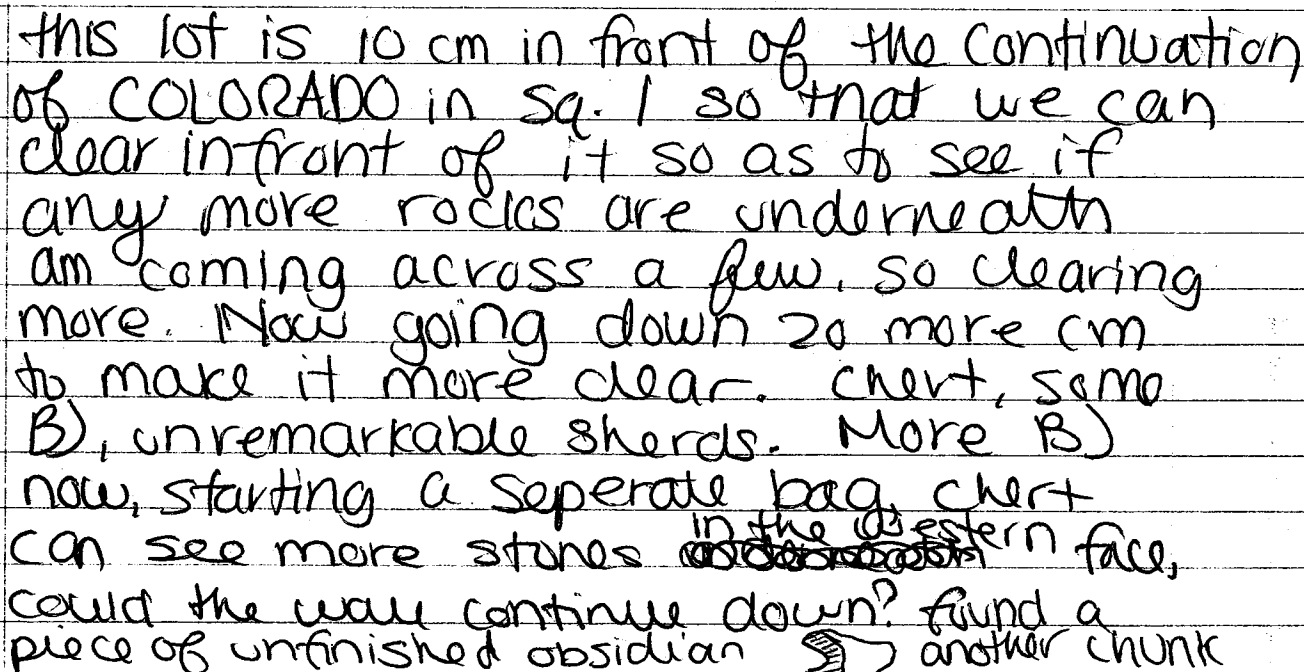 this lot is 10 cm in front of the continuation
of COLORADO in Sq. 1 so that we can
clear infront of it so as to see if
any more rocks are underneath
am coming across a few, so clearing
more. Now going down 20 more cm
to make it more clear. Chert, some
B), unremarkable sherds. More B)
now, starting a seperate bag, chert
can see more stones in the western face,
could the wall continue down? found a
piece of unfinished obsidian another chunk